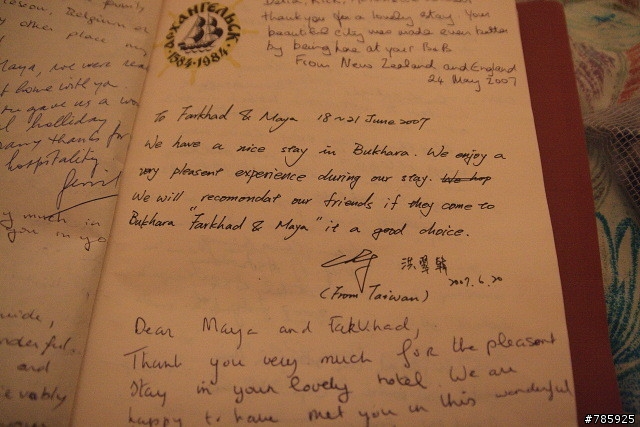 other place my
Maya, we were
home with you.
gave us a
holliday
many thanks for
hospitality
much in
you in
and
АРХАНГЕЛЬСК
1584-1984
thank you for a lovely stay. Your
beautiful city was made even better
by being here at your B&B
From New Zealand and England
24 May 2007
To Farkhad & Maya 18~21 June 2007
We have a nice stay in Bukhara. We enjoy a
very pleasent experience during our stay. We hop
We will recomondat our friends if they come to
Bukhara "Farkhad & Maya" is a good choice.
2007.6.20
(From Taiwan)
Dear Maya and Fakkhad,
Thank you very much for the pleasent
stay in your lovely hotel. We are
happy to have met you in this wonderful
#785925